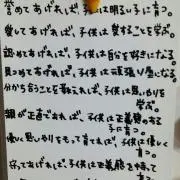 誉めてあげれば、子供は明るい子に育つ。
愛してあげれば、子供は愛することを学ぶ。
認めてあげれば、子供は自分を好きになる。
見つめてあげれば、子供は頑張り屋になる。
分かち合うことを教えれば、子供は思いやりを
学ぶ。
親が正直であれば、子供は正義感のある
子に育つ。
優しく思いやりをもって育てれば、子供は優しく
育つ。
守ってあげれば、子供は正義感を持って